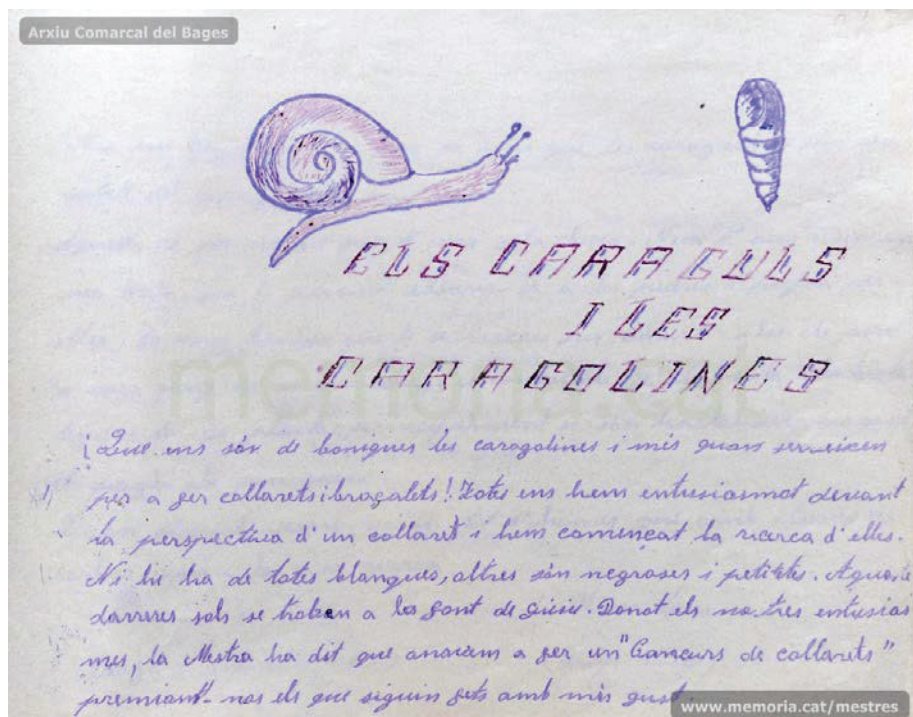 Arxiu Comarcal del Bages
ELS CARAGULS
I LES
CARAGOLINES
memoria.cat
¡Que ens són de boniques les caragolines i més quan serveixen
per a fer collarets i braçalets! Totes ens hem entusiasmat devant
la perspectiva d'un collaret i hem començat la ricerca d'elles.
N'hi ha de totes blanques, altres són negroses i petitetes. Aqueste
darreres sols se troben a la Font de
Donat els nostres entusias
mes, la Mestra ha dit que anavem a fer un "Concurs de collarets"
premiant-nos els que siguin fets amb més gust.
www.memoria.cat/mestres